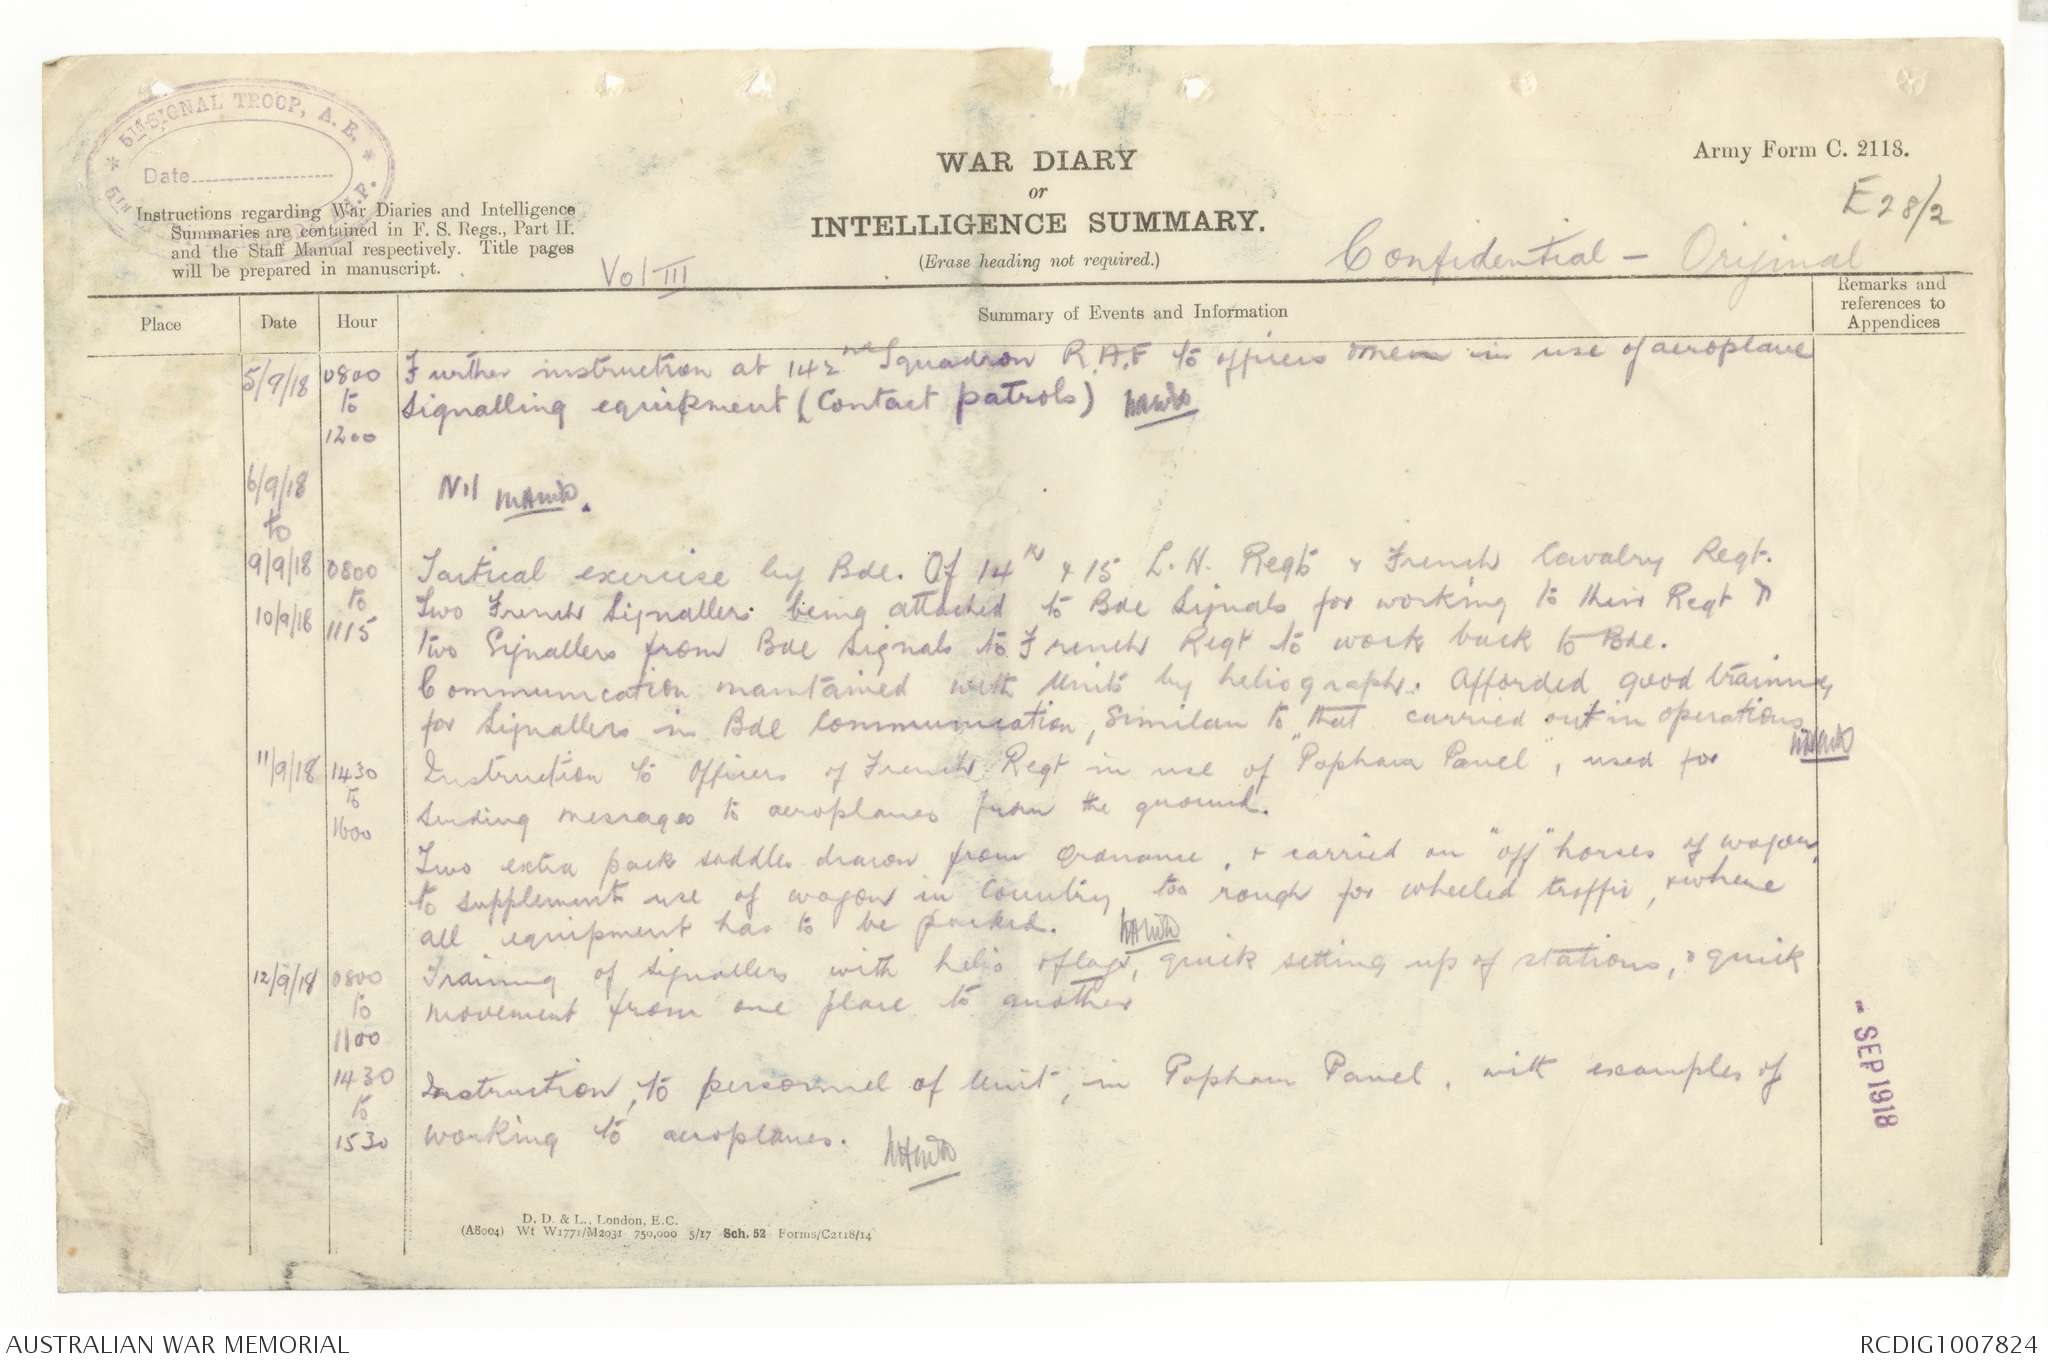 5TH SIGNAL TROOP, A. E.
Date
Instructions regarding War Diaries and Intelligence
Summaries are contained in F. S. Regs., Part II.
and the Staff Manual respectively. Title pages
will be prepared in manuscript.
Vol III
WAR DIARY
or
INTELLIGENCE SUMMARY.
(Erase heading not required.)
Army Form C. 2118.
E 28/2
Confidential - Original
Place
Date
Hour
Summary of Events and Information
Remarks and
references to
Appendices
5/9/18 0800 Further instruction at 142nd Squadron R.A.F to officers & men in use of aeroplane
to Signalling equipment (Contact patrols)
1200
6/9/18 Nil
to
9/9/18 0800 Tactical exercise by Bde. Of 14th & 15 L. H. Regts & French Cavalry Regt.
to Two French Signallers being attached to Bde Signals for working to their Regt &
10/9/18 1115 two Signallers from Bde Signals to French Regt to work back to Bde.
Communication maintained with Units by heliograph. Afforded good training
for Signallers in Bde Communication, similar to that carried out in operations
11/9/18 1430 Instruction to Officers of French Regt in use of "Popham Panel", used for
to sending messages to aeroplanes from the ground.
1600
Two extra pack saddles drawn from Ordnance, & carried on "off" horses of wagon,
to supplement use of wagon in Country too rough for wheeled traffic, & where
all equipment has to be packed.
12/9/18 0800 Training of Signallers with helio & flags, quick setting up of stations, & quick
to movement from one place to another
1100
1430 Instruction, to personnel of Unit, in Popham Panel, with examples of
to
1530 working to aeroplanes.
- SEP 1918
D. D. & L., London, E.C.
(A8004) Wt W1771/M2031 750,000 5/17 Sch. 52 Forms/C2118/14
AUSTRALIAN WAR MEMORIAL
RCDIG1007824